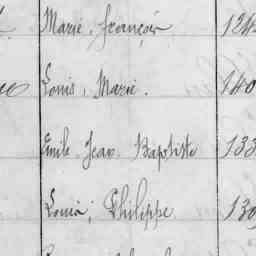 Marie, François
Louis, Marie.
Emile Jean Baptiste 133
Louis, Philippe 139